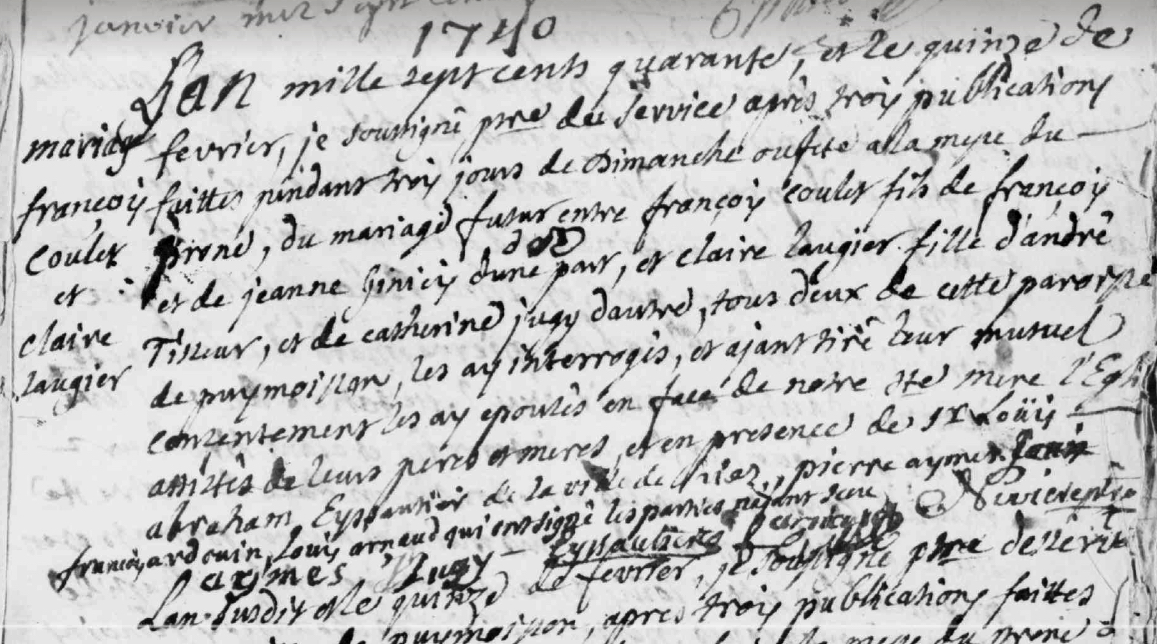 janvier mil sept cent
1740
L'an mille sept cents quarante, et le quinze de
mariage fevrier, je soussigné ptre du service après trois publications
françois faittes pendant trois jours de Dimanche ou fete a la messe du
Coulet prone, du mariage futur entre françois Coulet fils de françois
et et de jeanne d'une part, et claire laugier fille d'andré
claire Tisseur, et de catherine jugy d'autre, tous deux de cette paroisse
laugier de puymoisson, les ay interrogés, et ajant tiré leur mutuel
consentement les ay epousés en face de notre ste mere l'Egli
assistés de leurs peres et meres, et en presence de sr Loüis
abraham Eyssautier de la ville de riez, pierre aymes
françois ardouin, Louis arnaud qui ont signé les parties n'ajant sceu
aymes Jugy Eyssautier
L'an susdit et le quinze de fevrier, je soussigné ptre desservt
de puymoisson, apres trois publications faittes
la messe du prone